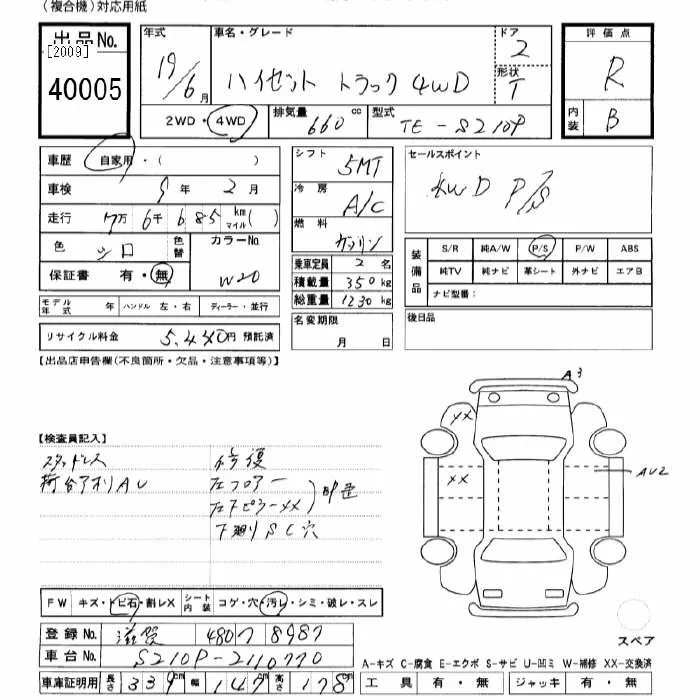 (複合機)対応用紙
出品No.
[2009]
40005
年式 19/6月
車名・グレード ハイゼット トラック 4WD
ドア 2
形状 T
評価点 R
内装 B
2WD・4WD
排気量 660 cc
型式 TE-S210P
車歴 自家用・( )
車検 9年 2月
走行 7万 6千 685 km マイル( )
色 シロ
色替
カラーNo. W20
保証書 有・無
モデル年式 年 ハンドル 左・右 ディーラー・並行
リサイクル料金 5,440円 預託済
シフト 5MT
冷房 A/C
燃料 ガソリン
乗車定員 2名
積載量 350kg
総重量 1230kg
名変期限
月 日
セールスポイント
4WD P/S
装備品
S/R 純A/W P/S P/W ABS
純TV 純ナビ 革シート 外ナビ エアB
ナビ型番:
後日品
【出品店申告欄(不良箇所・欠品・注意事項等)】
【検査員記入】
スタッドレス
荷台アオリAU
修復
左フロアー
左下ピラーXX
下廻りSC穴
A3
XX
XX
AU2
スペア
FW キズ・トビ石・割レX シート内装 コゲ・穴・汚レ・シミ・破レ・スレ
登録No. 滋賀 480 ワ 8987
車台No. S210P-2110770
車庫証明用 長さ 339cm 幅 147cm 高さ 178cm
A-キズ C-腐食 E-エクボ S-サビ U-凹ミ W-補修 XX-交換済
工具 有・無 ジャッキ 有・無